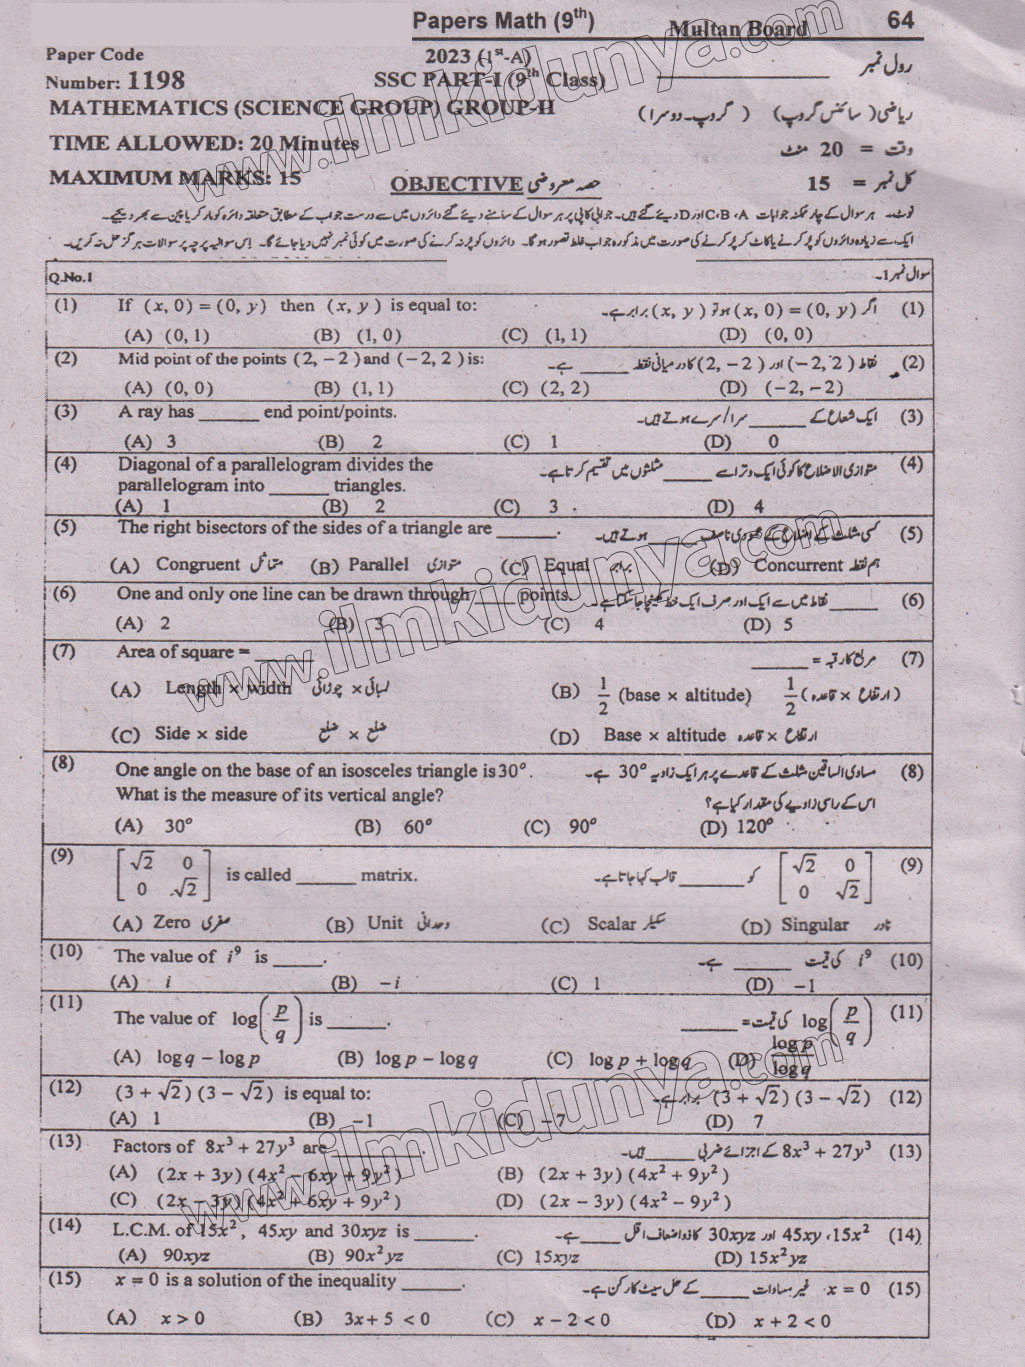 Papers Math (9th) Multan Board 64
Paper Code 2023 (1st-A) رول نمبر
Number: 1198 SSC PART-I (9th Class)
MATHEMATICS (SCIENCE GROUP) GROUP-II ریاضی (سائنس گروپ) (گروپ۔دوسرا)
TIME ALLOWED: 20 Minutes وقت = 20 منٹ
MAXIMUM MARKS: 15 OBJECTIVE حصہ معروضی کل نمبر = 15
نوٹ۔ ہر سوال کے چار ممکنہ جوابات A، B، C اور D دیئے گئے ہیں۔ جوابی کاپی پر ہر سوال کے سامنے دیئے گئے دائروں میں سے درست جواب کے مطابق متعلقہ دائرہ کو مارکر یا پین سے بھر دیجیے۔
ایک سے زیادہ دائروں کو پُر کرنے یا کاٹ کر پُر کرنے کی صورت میں مذکورہ جواب غلط تصور ہوگا۔ دائروں کو پُر نہ کرنے کی صورت میں کوئی نمبر نہیں دیا جائے گا۔ اِس سوالیہ پرچہ پر سوالات ہرگز حل نہ کریں۔
Q.No.1 سوال نمبر 1۔
(1) If (x, 0) = (0, y) then (x, y) is equal to: اگر (x, 0) = (0, y) ہو تو (x, y) برابر ہے۔ (1)
(A) (0, 1) (B) (1, 0) (C) (1, 1) (D) (0, 0)
(2) Mid point of the points (2, −2) and (−2, 2) is: نقاط (−2, 2) اور (2, −2) کا درمیانی نقطہ ______ ہے۔ (2)
(A) (0, 0) (B) (1, 1) (C) (2, 2) (D) (−2, −2)
(3) A ray has ______ end point/points. ایک شعاع کے ______ سرا/سرے ہوتے ہیں۔ (3)
(A) 3 (B) 2 (C) 1 (D) 0
(4) Diagonal of a parallelogram divides the متوازی الاضلاع کا کوئی ایک وتر اسے ______ مثلثوں میں تقسیم کرتا ہے۔ (4)
parallelogram into ______ triangles.
(A) 1 (B) 2 (C) 3 (D) 4
(5) The right bisectors of the sides of a triangle are ______. کسی مثلث کے اضلاع کے عمودی ناصف ______ ہوتے ہیں۔ (5)
(A) Congruent متماثل (B) Parallel متوازی (C) Equal برابر (D) Concurrent ہم نقطہ
(6) One and only one line can be drawn through ____ points. ______ نقاط میں سے ایک اور صرف ایک خط کھینچا جا سکتا ہے۔ (6)
(A) 2 (B) 3 (C) 4 (D) 5
(7) Area of square = ______ مربع کا رقبہ = ______ (7)
(A) Length × width لمبائی × چوڑائی (B) 1/2 (base × altitude) 1/2 (ارتفاع × قاعدہ)
(C) Side × side ضلع × ضلع (D) Base × altitude ارتفاع × قاعدہ
(8) One angle on the base of an isosceles triangle is 30°. مساوی الساقین مثلث کے قاعدے پر ہر ایک زاویہ 30° ہے۔ (8)
What is the measure of its vertical angle? اس کے راسی زاویے کی مقدار کیا ہے؟
(A) 30° (B) 60° (C) 90° (D) 120°
(9) [√2 0 / 0 √2] is called ______ matrix. [√2 0 / 0 √2] کو ______ قالب کہا جاتا ہے۔ (9)
(A) Zero صفری (B) Unit وحدانی (C) Scalar سکیلر (D) Singular نادر
(10) The value of i⁹ is _____. i⁹ کی قیمت ______ ہے۔ (10)
(A) i (B) −i (C) 1 (D) −1
(11) The value of log(p/q) is ______. log(p/q) کی قیمت = ______ (11)
(A) log q − log p (B) log p − log q (C) log p + log q (D) log p / log q
(12) (3 + √2) (3 − √2) is equal to: (3 + √2) (3 − √2) برابر ہے۔ (12)
(A) 1 (B) −1 (C) −7 (D) 7
(13) Factors of 8x³ + 27y³ are ______. 8x³ + 27y³ کے اجزائے ضربی ______ ہیں۔ (13)
(A) (2x + 3y) (4x² − 6xy + 9y²) (B) (2x + 3y) (4x² + 9y²)
(C) (2x − 3y) (4x² + 6xy + 9y²) (D) (2x − 3y) (4x² − 9y²)
(14) L.C.M. of 15x², 45xy and 30xyz is ______. 15x²، 45xy اور 30xyz کا ذواضعاف اقل ____ ہے۔ (14)
(A) 90xyz (B) 90x²yz (C) 15xyz (D) 15x²yz
(15) x = 0 is a solution of the inequality ______. x = 0 غیر مساوات ______ کے حل سیٹ کا رکن ہے۔ (15)
(A) x > 0 (B) 3x + 5 < 0 (C) x − 2 < 0 (D) x + 2 < 0
www.ilmkidunya.com
www.ilmkidunya.com
www.ilmkidunya.com